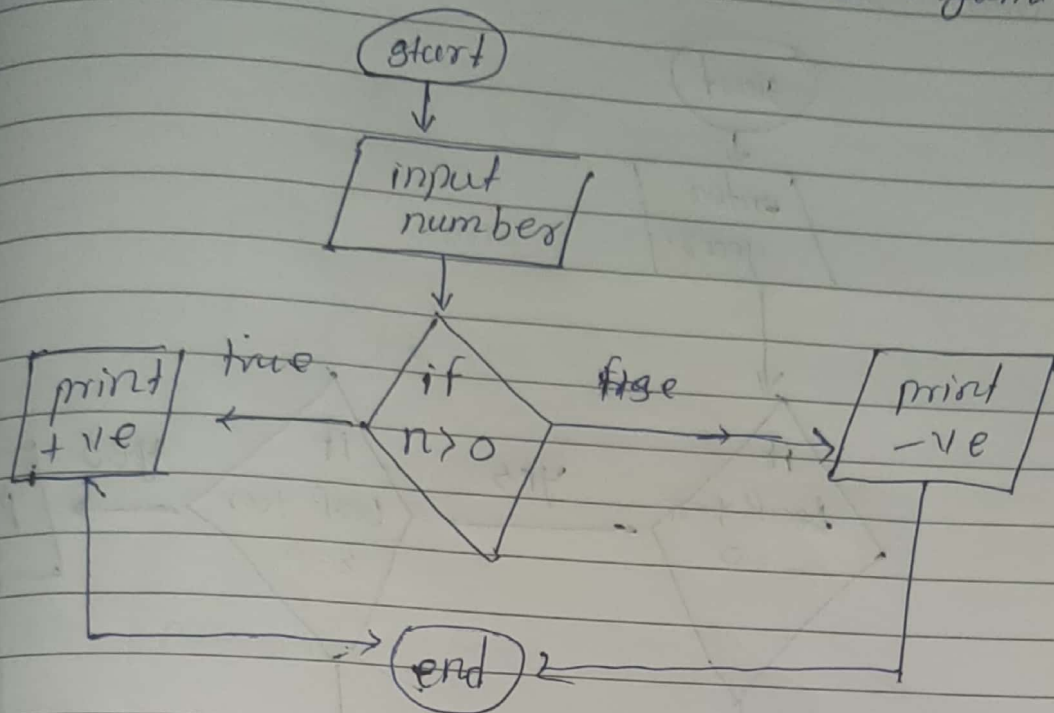 start
input
number
if
n>0
true
print
+ve
print
-ve
end